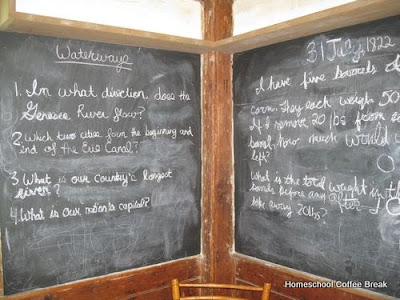 Waterways
1. In what direction does the
Genesee River flow?
2 Which two cities form the beginning and
end of the Erie Canal?
3. What is our country's longest
river?
4. What is our nation's capital?
31 July, 1822
I have five barrels of
corn. They each weigh 50
If I remove 20 lbs from
how much would
left?
What is the total weight in th
before any
take away 20lbs?
Homeschool Coffee Break